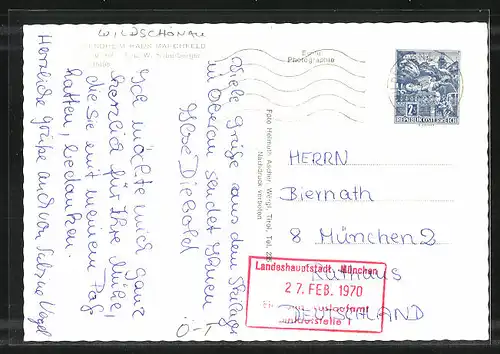 WILDSCHÖNAU
JUGENDHEIM HAUS MARCHFELD
Viele Grüße aus dem Skilager
in Oberau sendet Ihnen
Ilse Diebold
Ich möchte mich ganz
herzlich für Ihre Mühe,
die Sie mit meinem Paß
hatten, bedanken.
Herzliche Grüße auch von Sabine Vogel
Ö-T
Echte
Photographie
Foto Hellmuth Ascher, Wörgl, Tirol, Tel. 25
Nachdruck verboten
2 S
REPUBLIK ÖSTERREICH
HERRN
Biernath
8 München 2
Rathaus
DEUTSCHLAND
Landeshauptstadt München
27. FEB. 1970